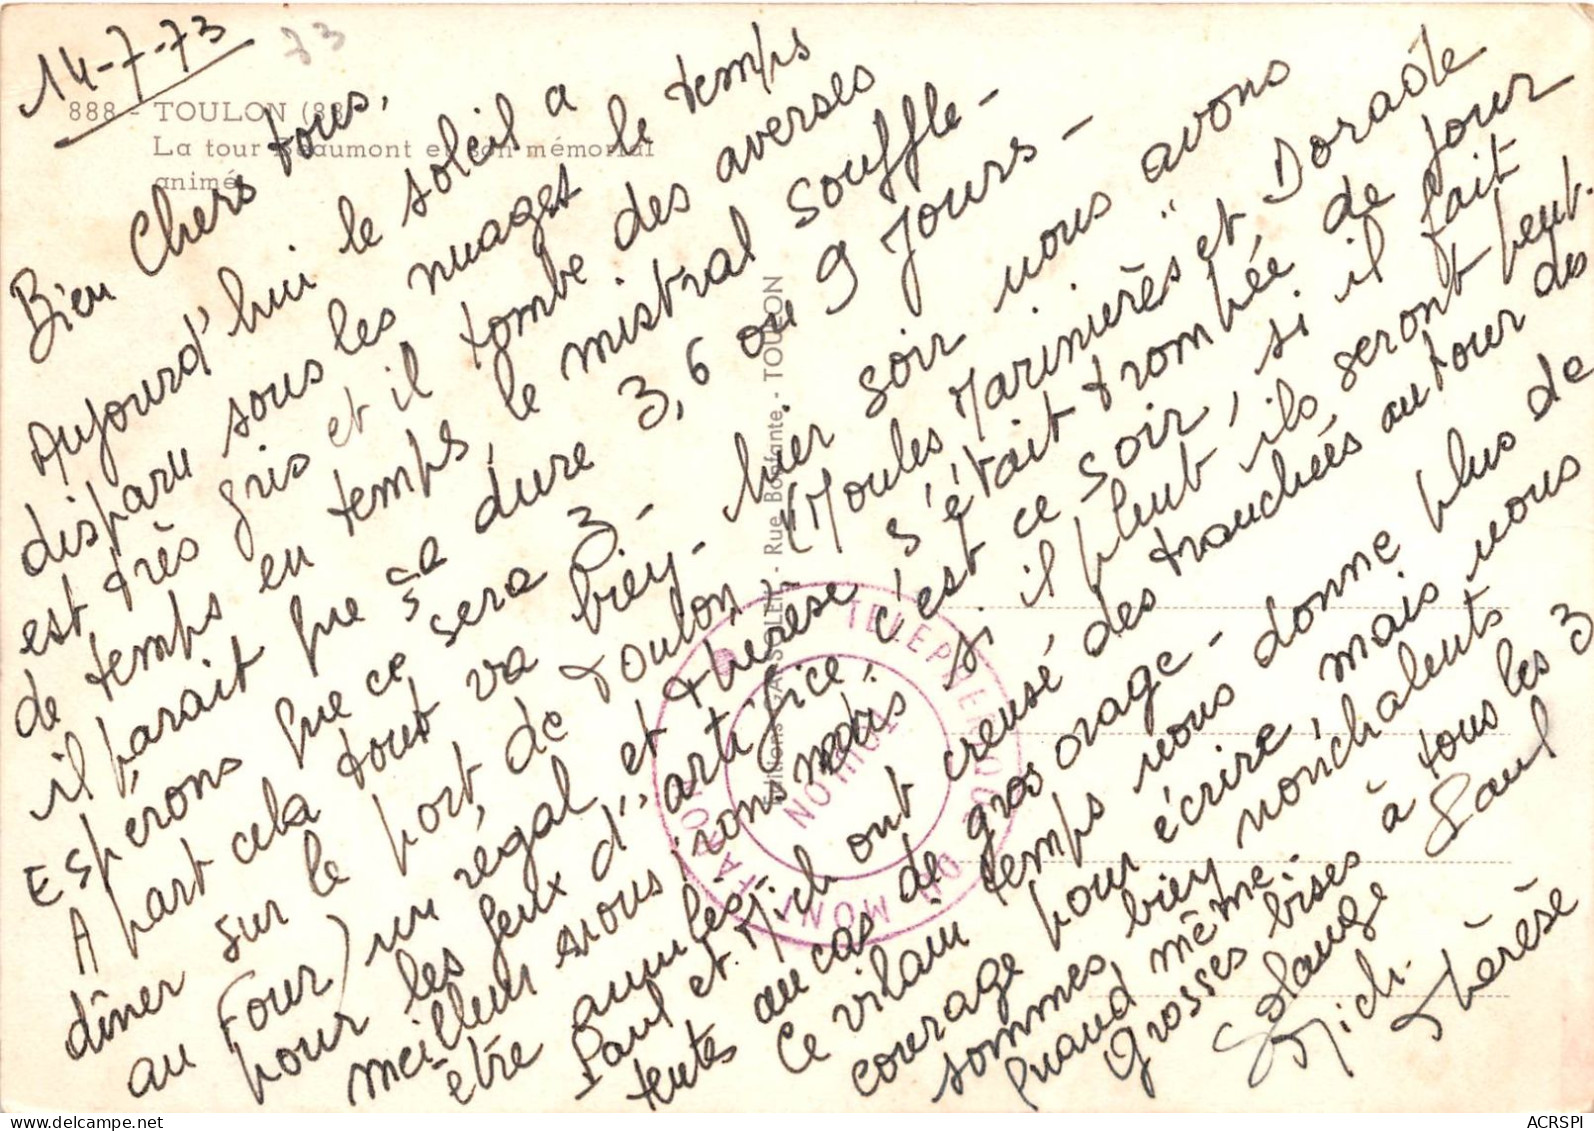 14-7-73
73
888 - TOULON (83
La tour Beaumont et son mémorial
animé
Bien Chers tous,
Aujourd'hui le soleil a
disparu sous les nuages le temps
est très gris et il tombe des averses
de temps en temps, le mistral souffle -
il parait que sa dure 3, 6 ou 9 Jours -
Espérons que ce sera 3 -
A part cela tout va bien - hier soir nous avons
dîner sur le port de Toulon (Moules Marinières et Dorade
au Four) un régal, et Thérèse s'était trompée de Jour
pour les feux d'"artifice, c'est ce soir, si il fait
meilleur nous irons mais si il pleut ils seront peut-
être annulés.
Paul et Mich ont creusé des tranchées autour des
tentes au cas de gros orage -
Ce vilain temps nous donne plus de
courage pour écrire, mais nous
sommes bien nonchalents
quand même.
Grosses bises à tous les 3
Solange Paul
Mich. Thérèse
Editions GASSOLER - Rue Bonfante - TOULON
TELEPHERIQUE DU MONT FARON
TOULON
ACRSPI